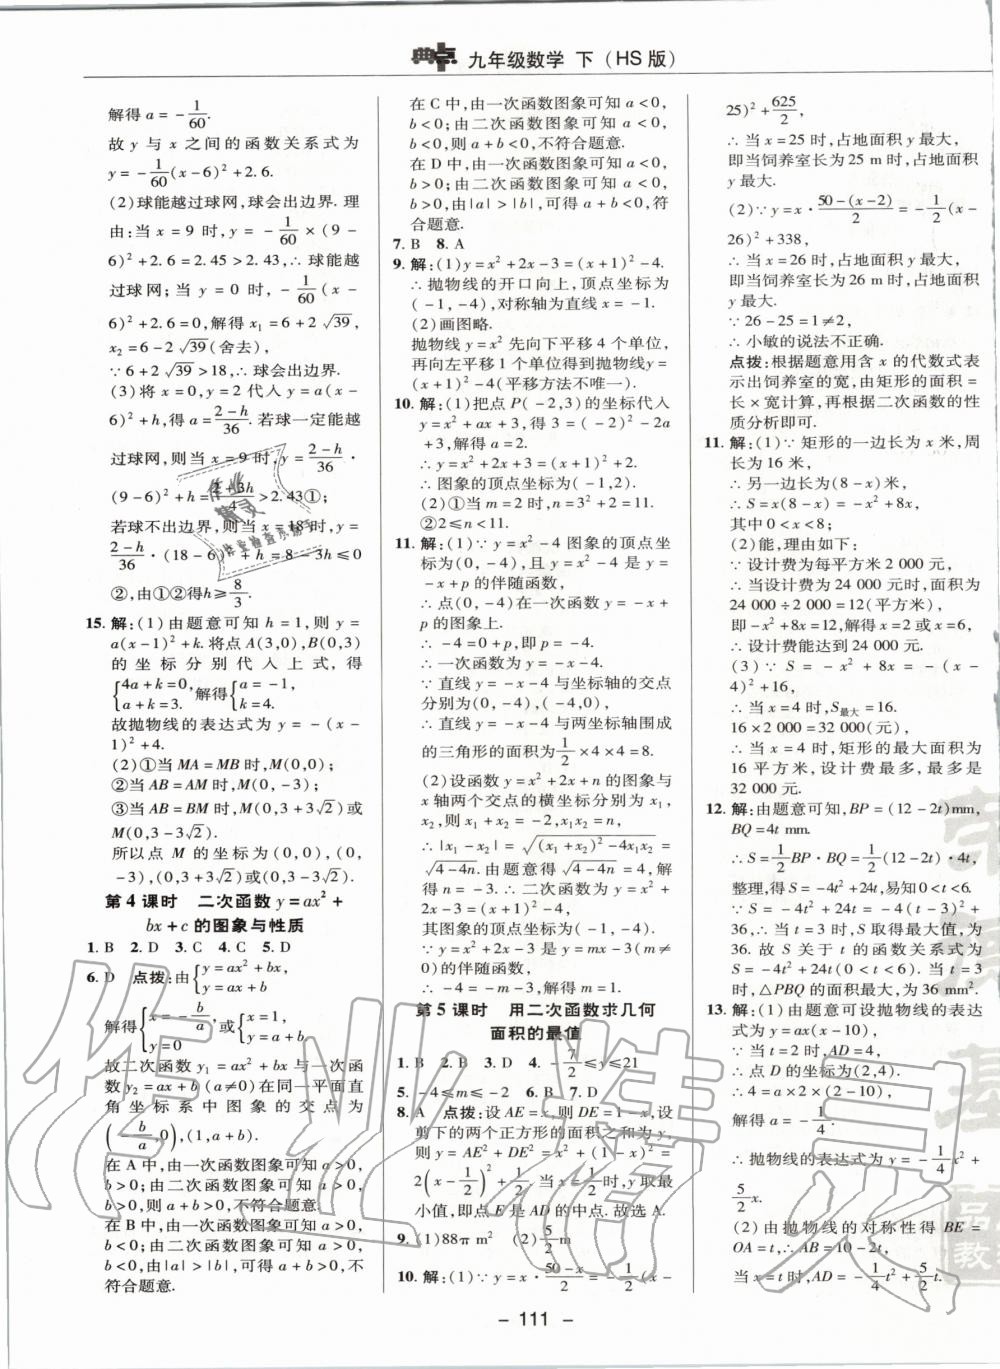 典点 九年级数学 下(HS版)
解得 a=-1/60.
故 y 与 x 之间的函数关系式为
y=-1/60(x-6)²+2.6.
(2)球能越过球网,球会出边界.理
由:当 x=9 时,y=-1/60×(9-
6)²+2.6=2.45>2.43,∴球能越
过球网;当 y=0 时,-1/60(x-
6)²+2.6=0,解得 x₁=6+2√39,
x₂=6-2√39(舍去),
∵6+2√39>18,∴球会出边界.
(3)将 x=0,y=2 代入 y=a(x-
6)²+h,得 a=(2-h)/36.若球一定能越
过球网,则当 x=9 时,y=(2-h)/36·
(9-6)²+h=(2+3h)/4>2.43①;
若球不出边界,则当 x=18 时,y=
(2-h)/36·(18-6)²+h=8-3h≤0
②,由①②得h≥8/3.
15. 解:(1)由题意可知 h=1,则 y=
a(x-1)²+k.将点 A(3,0),B(0,3)
的坐标分别代入上式,得
{4a+k=0, a+k=3. 解得{a=-1, k=4.
故抛物线的表达式为 y=-(x-
1)²+4.
(2)①当 MA=MB 时,M(0,0);
②当 AB=AM 时,M(0,-3);
③当 AB=BM 时,M(0,3+3√2)或
M(0,3-3√2).
所以点 M 的坐标为(0,0),(0,
-3),(0,3+3√2)或(0,3-3√2).
第4课时 二次函数 y=ax²+
bx+c 的图象与性质
1. B 2. D 3. C 4. C 5. D
6. D 点拨:由{y=ax²+bx, y=ax+b,
解得{x=-b/a, y=0 或{x=1, y=a+b.
故二次函数 y₁=ax²+bx 与一次函
数 y₂=ax+b(a≠0)在同一平面直
角坐标系中图象的交点为
(-b/a,0),(1,a+b).
在 A 中,由一次函数图象可知 a>0,
b>0;由二次函数图象可知 a>0,
b>0,则 a+b>0,不符合题意.
在 B 中,由一次函数图象可知 a>0,
b<0;由二次函数图象可知 a>0,
b<0,由|a|>|b|,可得 a+b>0,不
符合题意.
在 C 中,由一次函数图象可知 a<0,
b<0;由二次函数图象可知 a<0,
b<0,则 a+b<0,不符合题意.
在 D 中,由一次函数图象可知 a<0,
b>0;由二次函数图象可知 a<0,
b>0,由|a|>|b|,可得 a+b<0,符
合题意.
7. B 8. A
9. 解:(1)y=x²+2x-3=(x+1)²-4.
∴抛物线的开口向上,顶点坐标为
(-1,-4),对称轴为直线 x=-1.
(2)画图略.
抛物线 y=x² 先向下平移 4 个单位,
再向左平移 1 个单位得到抛物线y=
(x+1)²-4(平移方法不唯一).
10. 解:(1)把点 P(-2,3)的坐标代入
y=x²+ax+3,得 3=(-2)²-2a
+3,解得 a=2.
∴y=x²+2x+3=(x+1)²+2.
∴图象的顶点坐标为(-1,2).
(2)①当 m=2 时,n=11.
②2≤n<11.
11. 解:(1)∵y=x²-4 图象的顶点坐
标为(0,-4),且 y=x²-4 是 y=
-x+p 的伴随函数,
∴点(0,-4)在一次函数 y=-x+
p 的图象上.
∴-4=0+p,即 p=-4.
∴一次函数为 y=-x-4.
∵直线 y=-x-4 与坐标轴的交点
分别为(0,-4),(-4,0),
∴直线 y=-x-4 与两坐标轴围成
的三角形的面积为1/2×4×4=8.
(2)设函数 y=x²+2x+n 的图象与
x 轴两个交点的横坐标分别为 x₁,
x₂,则 x₁+x₂=-2,x₁x₂=n,
∴|x₁-x₂|=√((x₁+x₂)²-4x₁x₂)=
√(4-4n).由题意得√(4-4n)=4,解
得 n=-3.∴函数 y=x²+2x+n=
x²+2x-3=(x+1)²-4,
其图象的顶点坐标为(-1,-4).
∵y=x²+2x+n 是 y=mx-3(m≠
0)的伴随函数,
∴-4=-m-3,解得 m=1.
第5课时 用二次函数求几何
面积的最值
1. B 2. B 3. D 4. -7/2≤y≤21
5. -4≤m≤-2 6. B 7. D
8. A 点拨:设 AE=x,则 DE=1-x,设
剪下的两个正方形的面积之和为 y,
则 y=AE²+DE²=x²+(1-x)²=
2(x-1/2)²+1/2.当 x=1/2时,y 取最
小值,即点 E 是 AD 的中点.故选 A.
9. (1)88π m² (2)5/2 m
10. 解:(1)∵y=x·(50-x)/2=-1/2(x-
25)²+625/2,
∴当 x=25 时,占地面积 y 最大,
即当饲养室长为 25 m 时,占地面积
y 最大.
(2)∵y=x·(50-(x-2))/2=-1/2(x-
26)²+338,
∴当 x=26 时,占地面积 y 最大,
即当饲养室长为 26 m 时,占地面积
y 最大.
∵26-25=1≠2,
∴小敏的说法不正确.
点拨:根据题意用含 x 的代数式表
示出饲养室的宽,由矩形的面积=
长×宽计算,再根据二次函数的性
质分析即可.
11. 解:(1)∵矩形的一边长为 x 米,周
长为 16 米,
∴另一边长为(8-x)米,
∴S=x(8-x)=-x²+8x,
其中 0<x<8;
(2)能,理由如下:
∵设计费为每平方米 2 000 元,
∴当设计费为 24 000 元时,面积为
24 000÷2 000=12(平方米),
即-x²+8x=12,解得 x=2 或 x=6.
∴设计费能达到 24 000 元.
(3)∵S=-x²+8x=-(x-
4)²+16,
∴当 x=4 时,S最大=16.
16×2 000=32 000(元),
∴当 x=4 时,矩形的最大面积为
16 平方米,设计费最多,最多是
32 000 元.
12. 解:由题意可知,BP=(12-2t)mm,
BQ=4t mm.
∴S=1/2BP·BQ=1/2(12-2t)·4t,
整理,得 S=-4t²+24t,易知0<t<6.
∵S=-4t²+24t=-4(t-3)²+36,
∴当 t=3 时,S 取得最大值,为
36.故 S 关于 t 的函数关系式为
S=-4t²+24t(0<t<6).当 t=3
时,△PBQ 的面积最大,为 36 mm².
13. 解:(1)由题意可设抛物线的表达
式为 y=ax(x-10),
∵当 t=2 时,AD=4,
∴点 D 的坐标为(2,4).
∴4=a×2×(2-10),
解得 a=-1/4.
∴抛物线的表达式为 y=-1/4x²+
5/2x.
(2)由抛物线的对称性得 BE=
OA=t,∴AB=10-2t,
当 x=t 时,AD=-1/4t²+5/2t.
- 111 -
作业精灵